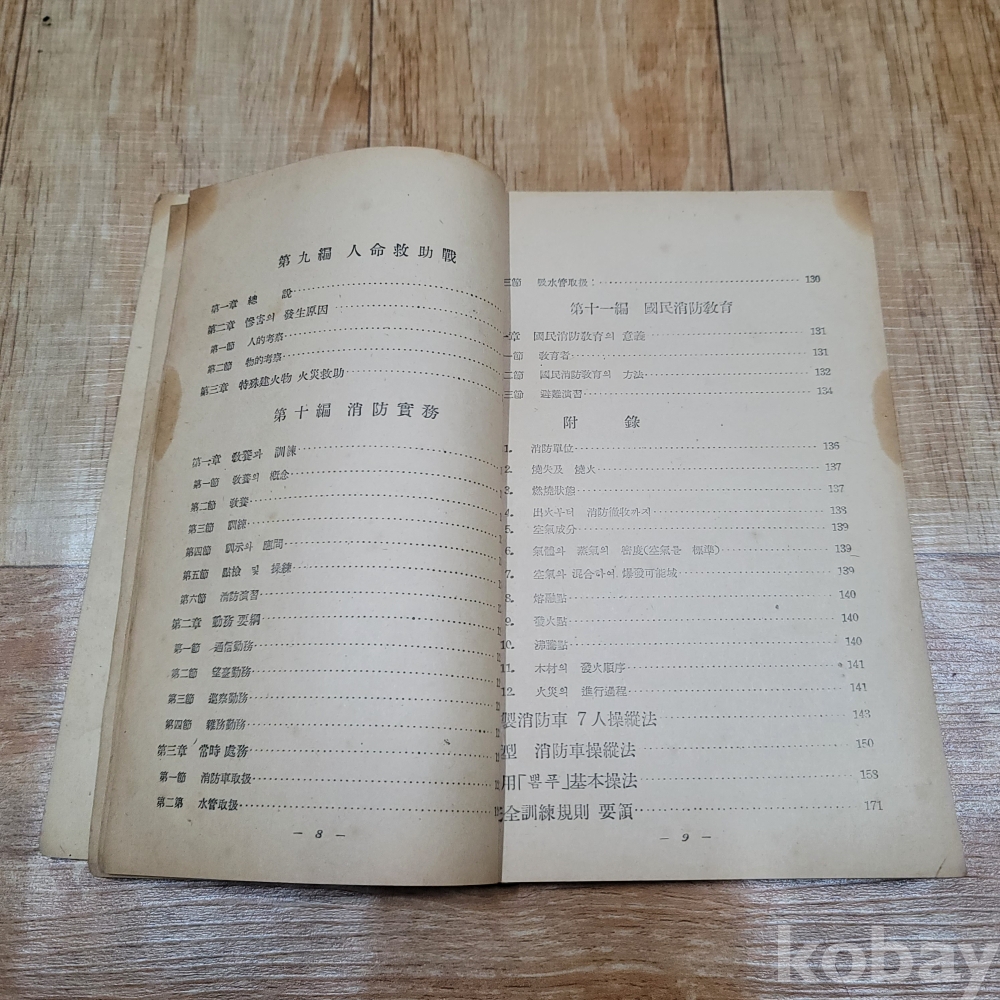 第九編 人命救助戰
第一章 總 說
第二章 慘害의 發生原因
第一節 人的考察
第二節 物的考察
第三章 特殊建火物 火災救助
第十編 消防實務
第一章 敎養과 訓練
第一節 敎養의 槪念
第二節 敎養
第三節 訓練
第四節 訓示와
第五節 點檢 및 操練
第六節 消防演習
第二章 勤務要綱
第一節 通信勤務
第二節 望臺勤務
第三節 勤務
第四節 雜務勤務
第三章 常時處務
第一節 消防車取扱
第二第 水管取扱
— 8 —
三節 吸水管取扱 130
第十一編 國民消防敎育
章 國民消防敎育의 意義 131
節 敎育者 131
二節 國民消防敎育의 方法 132
三節 避難演習 134
附 錄
1. 消防單位 136
2. 燒失及 燒火 137
3. 燃燒狀態 137
4. 出火부터 消防撤收까지 138
5. 空氣成分 139
6. 氣體와 蒸氣의 密度(空氣를 標準) 139
7. 空氣와 混合하여 爆發可能域 139
8. 熔融點 140
9. 發火點 140
10. 沸騰點 140
11. 木材의 發火順序 141
12. 火災의 進行過程 141
製消防車 7人操縱法 143
型 消防車操縱法 150
用「뽐푸」基本操法 158
全訓練規則 要領 171
— 9 —
kobay